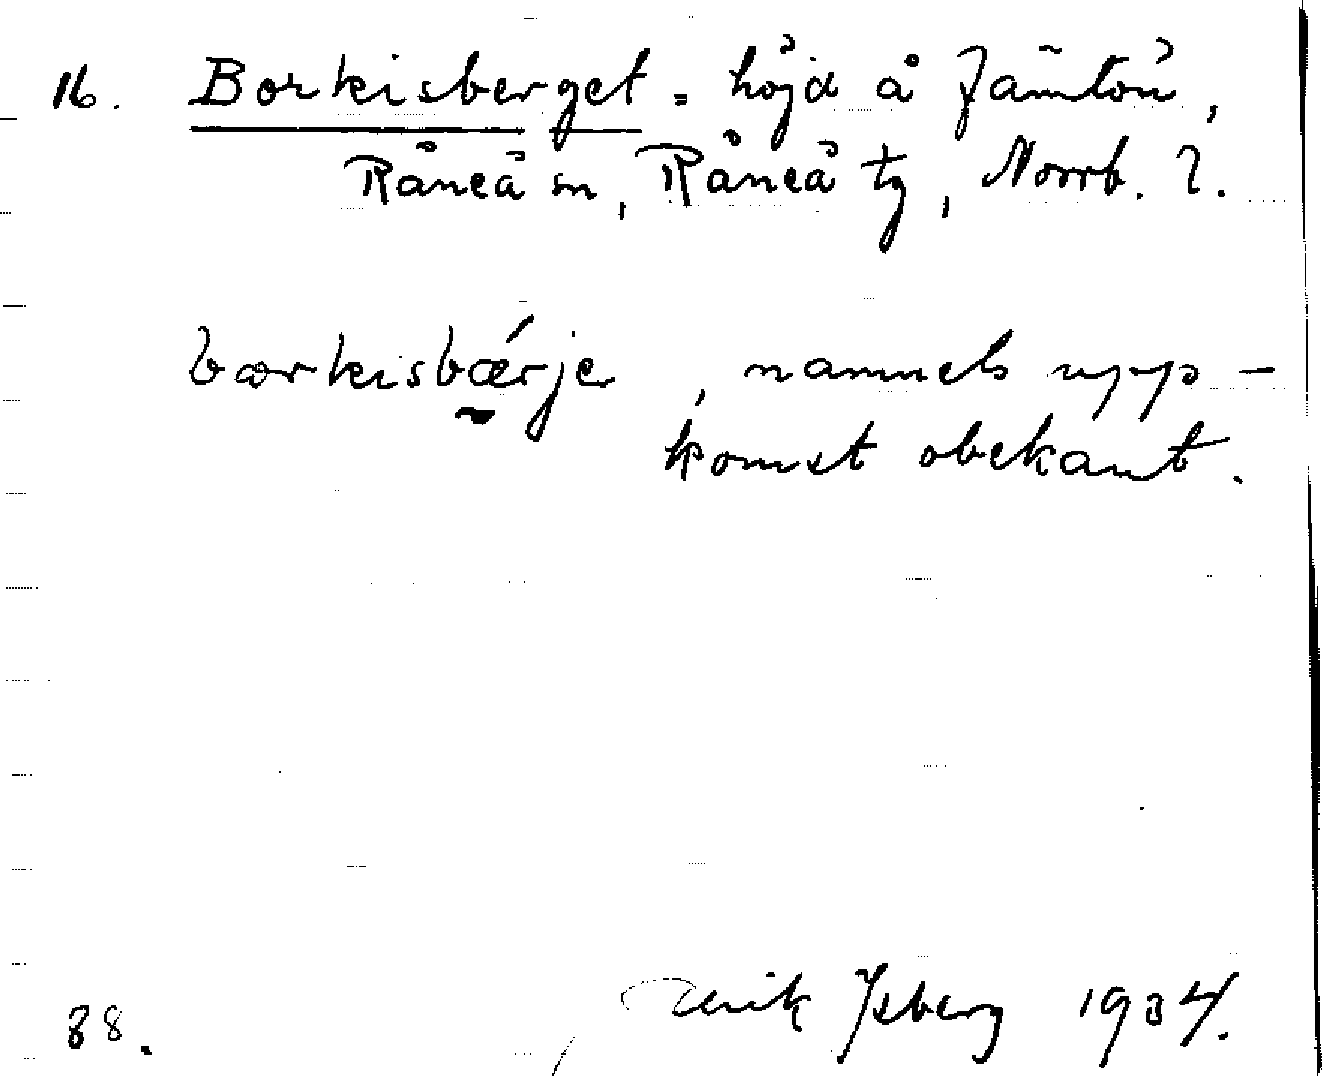 16. Borkisberget = höjd å Jämtön,
Råneå sn, Råneå tg, Norrb. l.
borkisbǽrje, namnets upp-
komst obekant.
88. Isberg 1934.